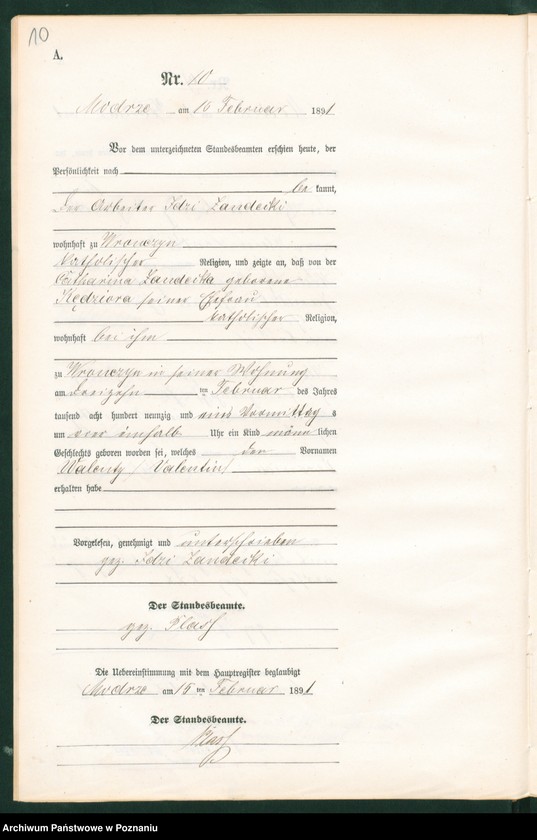 10
A.
Nr. 10
Modrze am 16 Februar 1891
Vor dem unterzeichneten Standesbeamten erschien heute, der
Persönlichkeit nach
be kannt,
Der Arbeiter Idzi Landecki
wohnhaft zu Wronczyn
Catholischer Religion, und zeigte an, daß von der
Catharina Landecka geborene
Kędziora seiner Ehefrau
katholischer Religion,
wohnhaft bei ihm
zu Wronczyn in seiner Wohnung
am ten Februar des Jahres
tausend acht hundert neunzig und eins Vormittag s
um Uhr ein Kind männ lichen
Geschlechts geboren worden sei, welches den Vornamen
Walenty /Valentin/
erhalten habe
Vorgelesen, genehmigt und unterschrieben
gez. Idzi Landecki
Der Standesbeamte.
gez.
Die Uebereinstimmung mit dem Hauptregister beglaubigt
Modrze am ten Februar 1891
Der Standesbeamte.
Archiwum Państwowe w Poznaniu